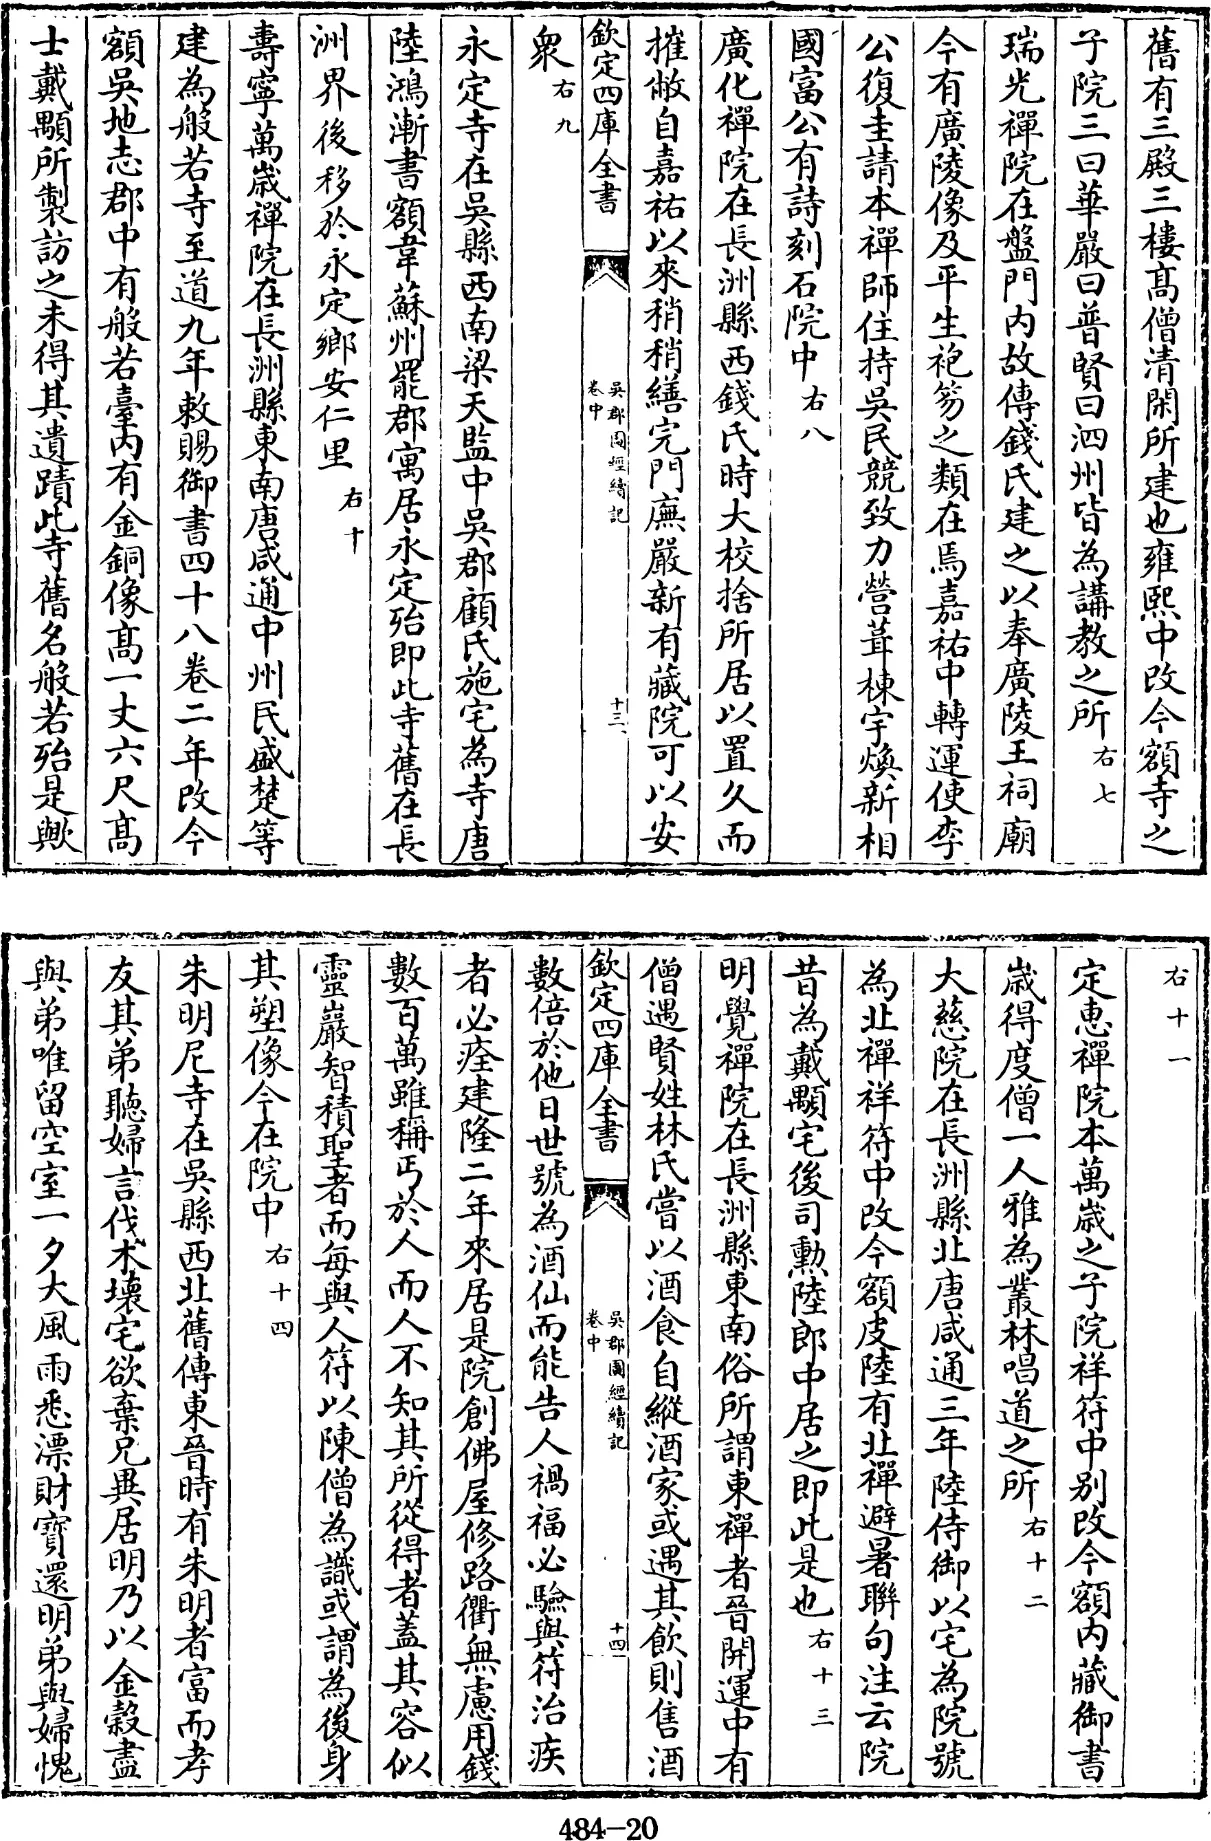 舊有三殿三樓高僧清閑所建也雍熙中改今額寺之
子院三曰華嚴曰普賢曰泗州皆為講教之所右七
瑞光禪院在盤門内故傳錢氏建之以奉廣陵王祠廟
今有廣陵像及平生袍笏之類在焉嘉祐中轉運使李
公復圭請本禪師住持吳民競致力營葺棟宇煥新相
國富公有詩刻石院中右八
廣化禪院在長洲縣西錢氏時大校捨所居以置久而
摧敝自嘉祐以來稍稍繕完門廡嚴新有藏院可以安
欽定四庫全書
吳郡圖經續記
卷中
十三
衆右九
永定寺在吳縣西南梁天監中吳郡顧氏施宅為寺唐
陸鴻漸書額韋蘇州罷郡寓居永定殆即此寺舊在長
洲界後移於永定鄉安仁里右十
壽寧萬歲禪院在長洲縣東南唐咸通中州民盛楚等
建為般若寺至道九年敕賜御書四十八卷二年改今
額吳地志郡中有般若臺内有金銅像高一丈六尺高
士戴顒所製訪之未得其遺蹟此寺舊名般若殆是歟
右十一
定惠禪院本萬歲之子院祥符中別改今額内藏御書
歲得度僧一人雅為叢林唱道之所右十二
大慈院在長洲縣北唐咸通三年陸侍御以宅為院號
為北禪祥符中改今額皮陸有北禪避暑聯句注云院
昔為戴顒宅後司勲陸郎中居之即此是也右十三
明覺禪院在長洲縣東南俗所謂東禪者晉開運中有
僧遇賢姓林氏嘗以酒食自縱酒家或遇其飲則售酒
欽定四庫全書
吳郡圖經續記
卷中
十四
數倍於他日世號為酒仙而能告人禍福必驗與符治疾
者必痊建隆二年來居是院創佛屋修路衢無慮用錢
數百萬雖稱丐於人而人不知其所從得者蓋其容似
靈巖智積聖者而每與人符以陳僧為識或謂為後身
其塑像今在院中右十四
朱明尼寺在吳縣西北舊傳東晉時有朱明者富而孝
友其弟聽婦言伐木壞宅欲棄兄異居明乃以金穀盡
與弟唯留空室一夕大風雨悉漂財寶還明弟與婦愧
484-20